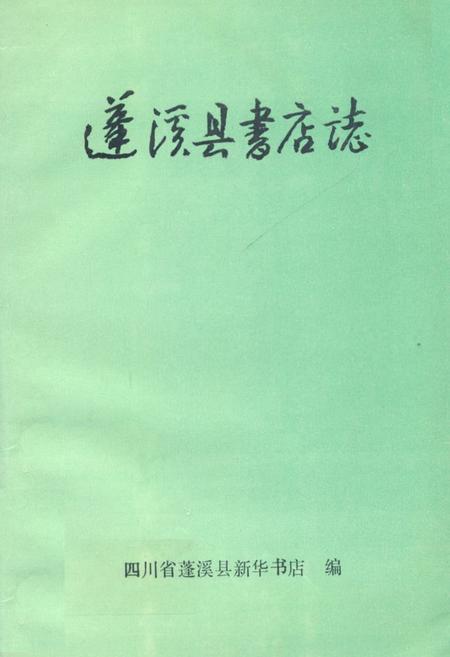 蓬溪县書店誌
四川省蓬溪县新华书店 编